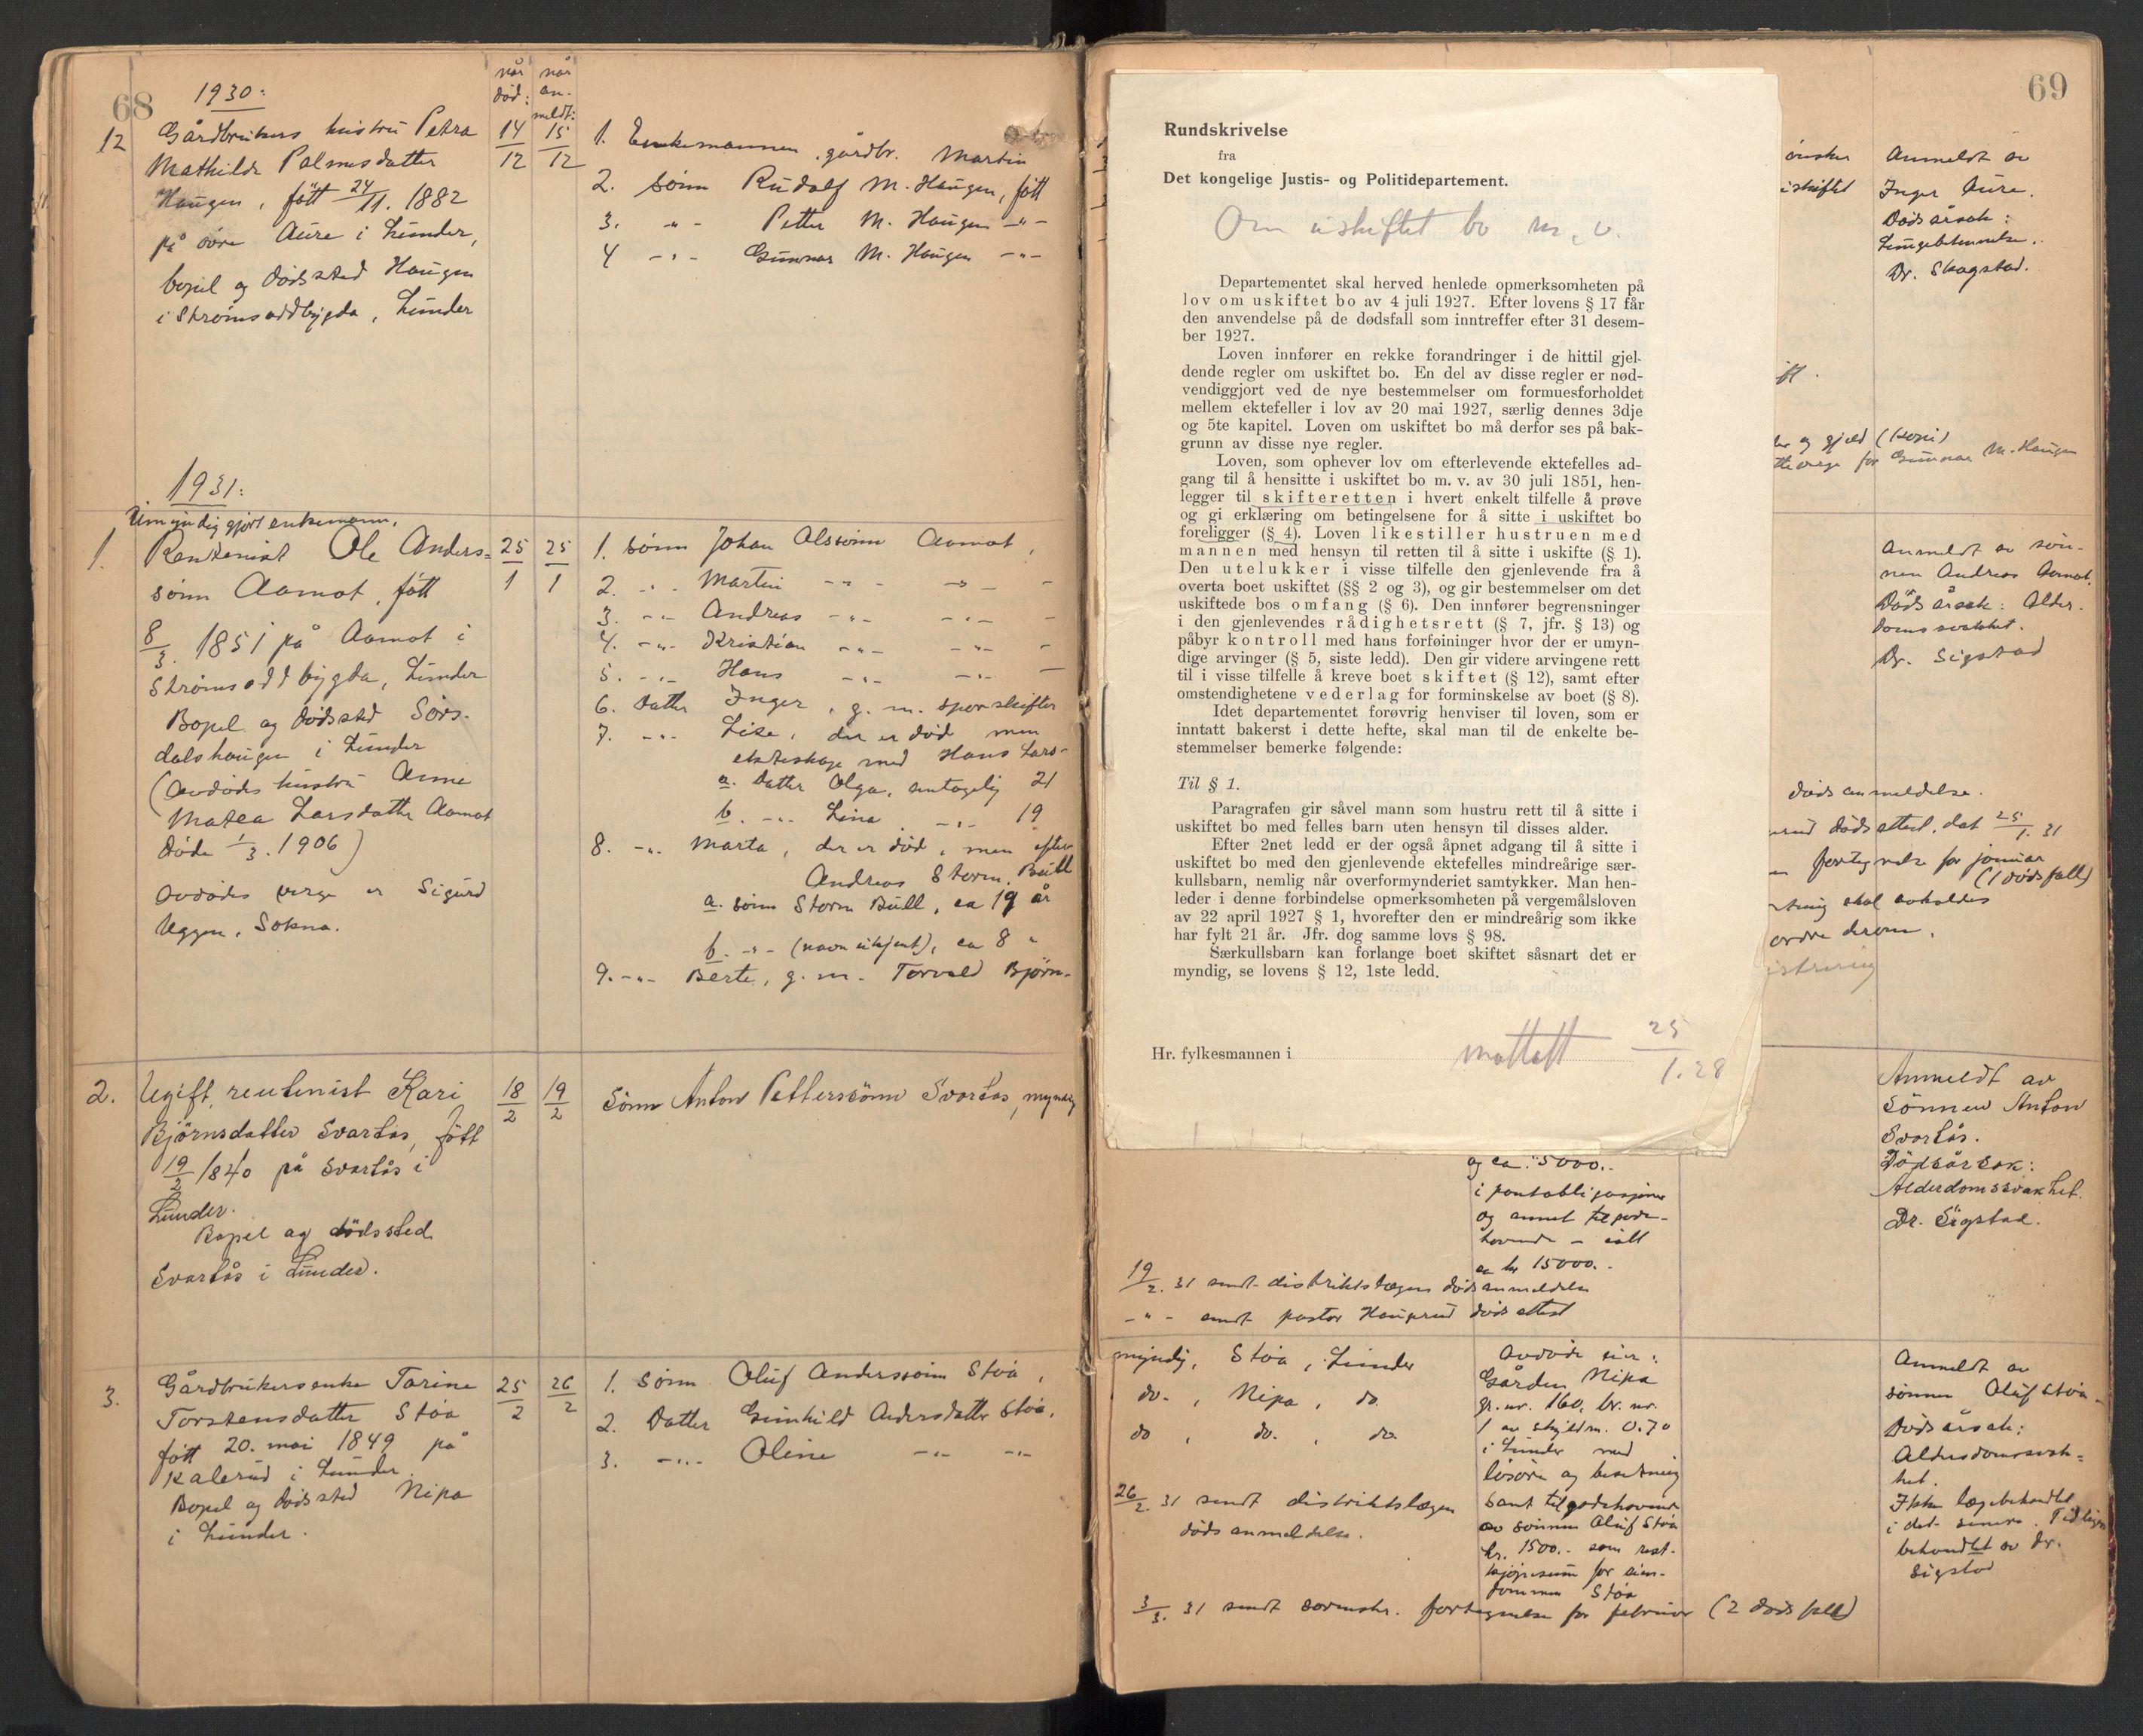 68
1930:
når død:
når anmeldt:
12
Gårdbrukers hustru Petra
Mathilde Palmesdatter
Haugen, født 24/11. 1882
på øvre Aure i Lunder,
bopel og dødssted Haugen
i Strømsoddbygda, Lunder
14/12
15/12
1. Enkemannen, gårdbr. Martin
2. Sønn Rudolf M. Haugen, født
3. -"- Petter M. Haugen -"-
4 -"- Gunnar M. Haugen -"-
1931:
Umyndiggjort enkemann,
1.
Rentenist Ole Anders-
sønn Aamot, født
8/3. 1851 på Aamot i
Strømsoddbygda, Lunder
Bopel og dødssted Sørs-
dalshaugen i Lunder
(Avdødes hustru Anne
Matea Larsdatter Aamot
døde 1/3. 1906)
Avdødes verge er Sigurd
Uggen, Sokna.
25/1
25/1
1. Sønn Johan Olssønn Aamot,
2. -"- Martin -"- -"-
3. -"- Andreas -"- -"-
4. -"- Kristian -"- -"-
5. -"- Hans -"- -"-
6. Datter Inger, g. m. sporskifter
7. -"- Lise, der er død men
ekteskap med Hans Lars-
a. Datter Olga, antagelig 21
b. -"- Lina -"- 19
8. -"- Marta, der er død, men efter
Andreas Storm Bull
a. sønn Storm Bull, ca 19 år
b. -"- (navn ukjent), ca 8 "
9. -"- Berte, g. m. Torvald Bjørn-
2.
Ugift rentenist Kari
Bjørnsdatter Svartås, født
19/2 1840 på Svartås i
Lunder.
Bopel og dødssted
Svartås i Lunder.
18/2
19/2
Sønn Anton Petterssønn Svartås, myndig
3.
Gårdbrukerenke Torine
Torstensdatter Støa
født 20. mai 1849 på
Kalerud i Lunder.
Bopel og dødssted Nipa
i Lunder.
25/2
26/2
1. Sønn Oluf Anderssønn Støa,
2. Datter Gunhild Andersdatter Støa,
3. -"- Oline -"- -"-
69
Rundskrivelse
fra
Det kongelige Justis- og Politidepartement.
Om uskiftet bo m. v.
Departementet skal herved henlede opmerksomheten på
lov om uskiftet bo av 4 juli 1927. Efter lovens § 17 får
den anvendelse på de dødsfall som inntreffer efter 31 desem-
ber 1927.
Loven innfører en rekke forandringer i de hittil gjel-
dende regler om uskiftet bo. En del av disse regler er nød-
vendiggjort ved de nye bestemmelser om formuesforholdet
mellem ektefeller i lov av 20 mai 1927, særlig dennes 3dje
og 5te kapitel. Loven om uskiftet bo må derfor ses på bak-
grunn av disse nye regler.
Loven, som ophever lov om efterlevende ektefelles ad-
gang til å hensitte i uskiftet bo m. v. av 30 juli 1851, hen-
legger til skifteretten i hvert enkelt tilfelle å prøve
og gi erklæring om betingelsene for å sitte i uskiftet bo
foreligger (§ 4). Loven likestiller hustruen med
mannen med hensyn til retten til å sitte i uskifte (§ 1).
Den utelukker i visse tilfelle den gjenlevende fra å
overta boet uskiftet (§§ 2 og 3), og gir bestemmelser om det
uskiftede bos omfang (§ 6). Den innfører begrensninger
i den gjenlevendes rådighetsrett (§ 7, jfr. § 13) og
påbyr kontroll med hans forføininger hvor der er umyn-
dige arvinger (§ 5, siste ledd). Den gir videre arvingene rett
til i visse tilfelle å kreve boet skiftet (§ 12), samt efter
omstendighetene vederlag for forminskelse av boet (§ 8).
Idet departementet forøvrig henviser til loven, som er
inntatt bakerst i dette hefte, skal man til de enkelte be-
stemmelser bemerke følgende:
Til § 1.
Paragrafen gir såvel mann som hustru rett til å sitte i
uskiftet bo med felles barn uten hensyn til disses alder.
Efter 2net ledd er der også åpnet adgang til å sitte i
uskiftet bo med den gjenlevende ektefelles mindreårige sær-
kullsbarn, nemlig når overformynderiet samtykker. Man hen-
leder i denne forbindelse opmerksomheten på vergemålsloven
av 22 april 1927 § 1, hvorefter den er mindreårig som ikke
har fylt 21 år. Jfr. dog samme lovs § 98.
Særkullsbarn kan forlange boet skiftet såsnart det er
myndig, se lovens § 12, 1ste ledd.
Hr. fylkesmannen i
mottatt 25/1.28
ønsker
iskiftet
Anmeldt av
Inger Aure.
Dødsårsak:
Lungebetennelse.
Dr. Skagstad.
og gjeld (kopi)
for Gunnar M. Haugen
Anmeldt av søn-
nen Andreas Aamot.
Dødsårsak: Alder-
domssvakhet.
Dr. Sigstad
dødsanmeldelse.
dødsattest, dat 25/1. 31
fortegnelse for januar
(1 dødsfall)
skal avholdes
ordre derom.
istrering
Anmeldt av
Sönnen Anton
Svartås.
Dödsårsak:
Alderdomssvakhet.
Dr. Sigstad.
og ca. 5000.-
i pantobligasjoner
og annet tilgode-
havende - ialt
ca kr 15000.-
19/2. 31 sendt distriktslægen dødsanmeldelse
-"- sendt pastor Haugerud dødsattest
myndig, Støa, Lunder
do. , Nipa, do.
do , do. , do.
26/2. 31 sendt distriktslægen
dødsanmeldelse.
Avdøde eier:
Gården Nipa
gr. nr. 160, br. nr.
1 av skyldm. 0.70
i Lunder med
løsøre og besetning
samt tilgodehavende
av sønnen Oluf Støa
kr. 1500.- som rest-
kjøpesum for eien-
dommen Støa
Anmeldt av
sønnen Oluf Støa
Dødsårsak:
Alderdomssvak-
het.
Ikke lægebehandlet
i det senere. Tidligere
behandlet av Dr.
Sigstad
3/3. 31 sendt sorenskr. fortegnelse for februar (2 dødsfall)